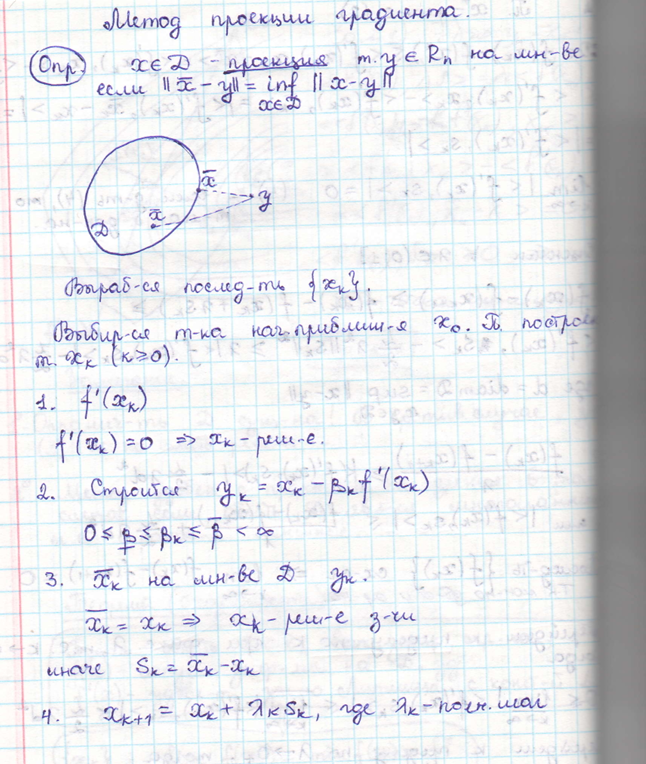 Метод проекции градиента.
Опр) x ∈ D - проекция т. y ∈ Rn на мн-ве
если ||x̄ - y|| = inf ||x - y||
x∈D
x̄
y
x̄
D
Выраб-ся послед-ть {xₖ}.
Выбир-ся т-ка нач. приближ-я x₀. П. построе
т. xₖ (k ≥ 0).
1. f'(xₖ)
f'(xₖ) = 0 ⇒ xₖ - реш-е.
2. Строится yₖ = xₖ - βₖ f'(xₖ)
0 ≤ β̲ ≤ βₖ ≤ β̄ < ∞
3. x̄ₖ на мн-ве D yₖ.
x̄ₖ = xₖ ⇒ xₖ - реш-е з-чи
иначе Sₖ = x̄ₖ - xₖ
4. xₖ₊₁ = xₖ + λₖSₖ, где λₖ - полн. шаг